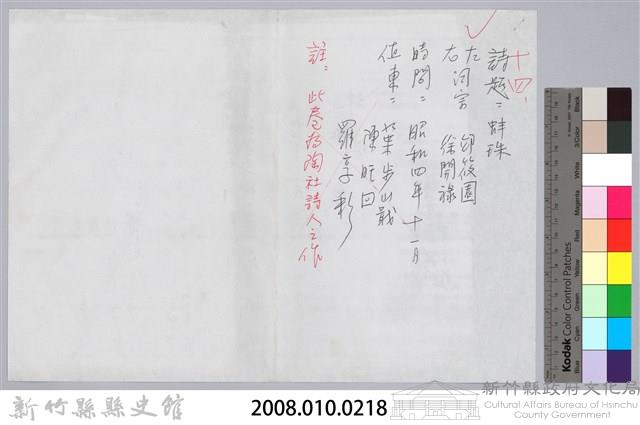 十四、
詩題：蚌珠
左詞宗 邱筱園
右 徐開祿
時間：昭和四年十一月
值東：葉步月
陳旺回
羅享彩
註：此卷為陶社詩人之作
Kodak Color Control Patches
Blue
Cyan
Green
Yellow
Red
Magenta
White
3/Color
Black
新竹縣縣史館
2008.010.0218
新竹縣政府文化局
Cultural Affairs Bureau of Hsinchu
County Government